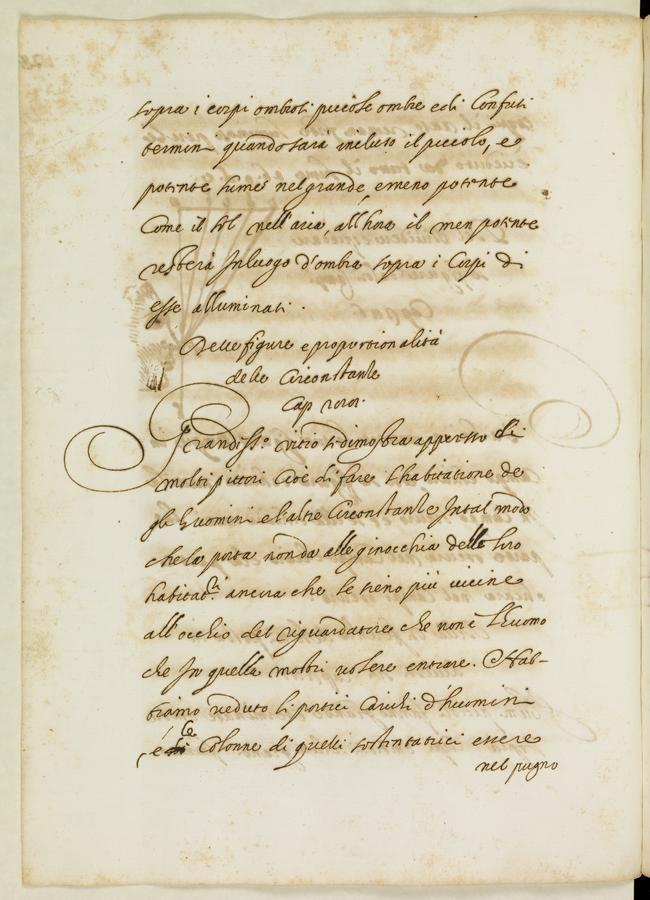 sopra i corpi ombrosi piccole ombre e di Confusi
termini quando sarà incluso il piccolo, e
potente lume nel grande e meno potente
Come il sol nell'aria, all'hora il men potente
resterà In luogo d'ombra sopra i Corpi di
esse alluminati.
Delle figure e proportionalità
delle Circonstante
Cap
Grandiss.º vitio si dimostra appresso di
molti pittori Cioè di fare l'habitatione de
gli huomini e l'altre Circonstante In tal modo
che la porta non dà alle ginocchia delle loro
habitat.ri ancora che le sieno più vicine
all'occhio del riguardatore che non è l'huomo
che In quella mostri volere entrare. Hab-
biamo veduto li portici Carichi d'huomini
e le Colonne di quelli sostentatrici essere
nel pugno